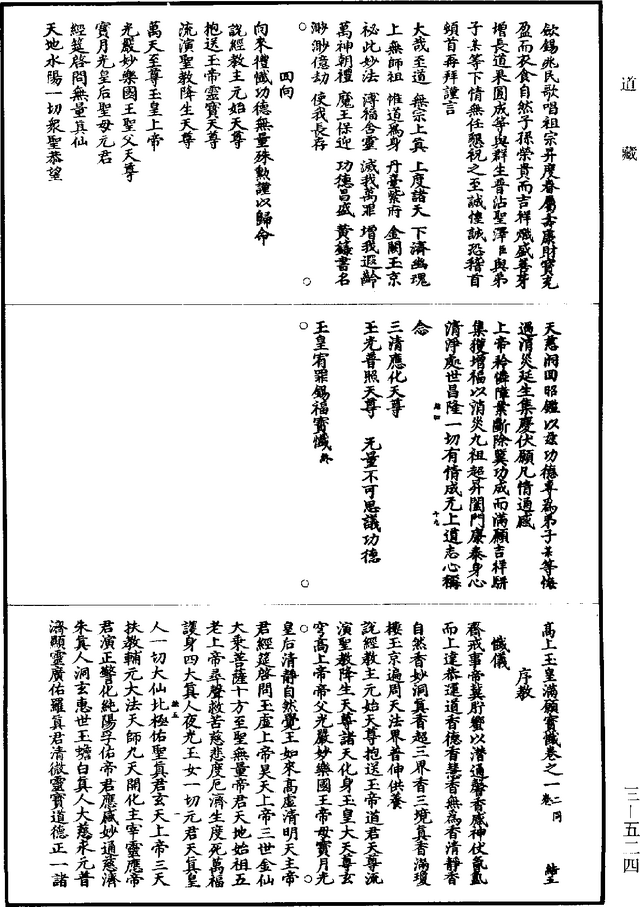 道藏
歆錫兆民歌唱祖宗昇度眷屬壽康財寶充
盈而衣食自然子孫榮貴而吉祥熾盛善芽
增長道果圓成等與群生普沾聖澤臣與弟
子某等下情無任懇祝之至誠惶誠恐稽首
頓首再拜謹言
大哉至道 無宗上真 上度諸天 下濟幽魂
上無師祖 惟道為身 丹臺紫府 金闕玉京
祕此妙法 溥福含靈 滅我萬罪 增我遐齡
萬神朝禮 魔王保迎 功德昌盛 黃籙書名
渺渺億劫 使我長存
回向
向來禮懺功德無量殊勳謹以歸命
說經教主元始天尊
抱送玉帝靈寶天尊
流演聖教降生天尊
萬天至尊玉皇上帝
光嚴妙樂國王聖父天尊
寶月光皇后聖母元君
經筵啓問無量真仙
天地水陽一切衆聖恭望
天慈洞回昭鑑以玆功德專為弟子某等悔
過消災延生集慶伏願凡情通感
上帝矜憐障業斷除冀功成而滿願吉祥駢
集獲增福以消災九祖超昇闔門康泰身心
清淨處世昌隆一切有情成无上道志心稱
念
三清應化天尊
玉光普照天尊 无量不可思議功德
玉皇宥罪錫福寶懺終
高上玉皇滿願寶懺卷之一 二同卷
序教
懺儀
齋戒事帝冀肸蠁以潛通馨香感神伏氤氳
而上達恭運道香德香慧香無為香清靜香
自然香妙洞真香超三界香三境真香滿瓊
樓玉京遍周天法界普伸供養
說經教主元始天尊抱送玉帝道君天尊流
演聖教降生天尊諸天化身玉皇大天尊玄
穹高上帝帝父光嚴妙樂國王帝母寶月光
皇后清靜自然覺王如來高虛清明天主帝
君經筵啓問玉虛上帝昊天上帝三世金仙
大乘菩薩十方至聖無量帝君天地始祖五
老上帝尋聲救苦慈悲度厄濟生度死萬福
護身四大真人夜光玉女一切元君天真皇
人一切大仙北極佑聖真君玄天上帝三天
扶教輔元大法天師九天開化主宰靈應帝
君演正警化純陽孚佑帝君應感妙通慈濟
朱真人洞玄惠世王蟾白真人大慈永元普
濟顯靈廣佑羅真君清微靈寶道德正一諸
三—五二四